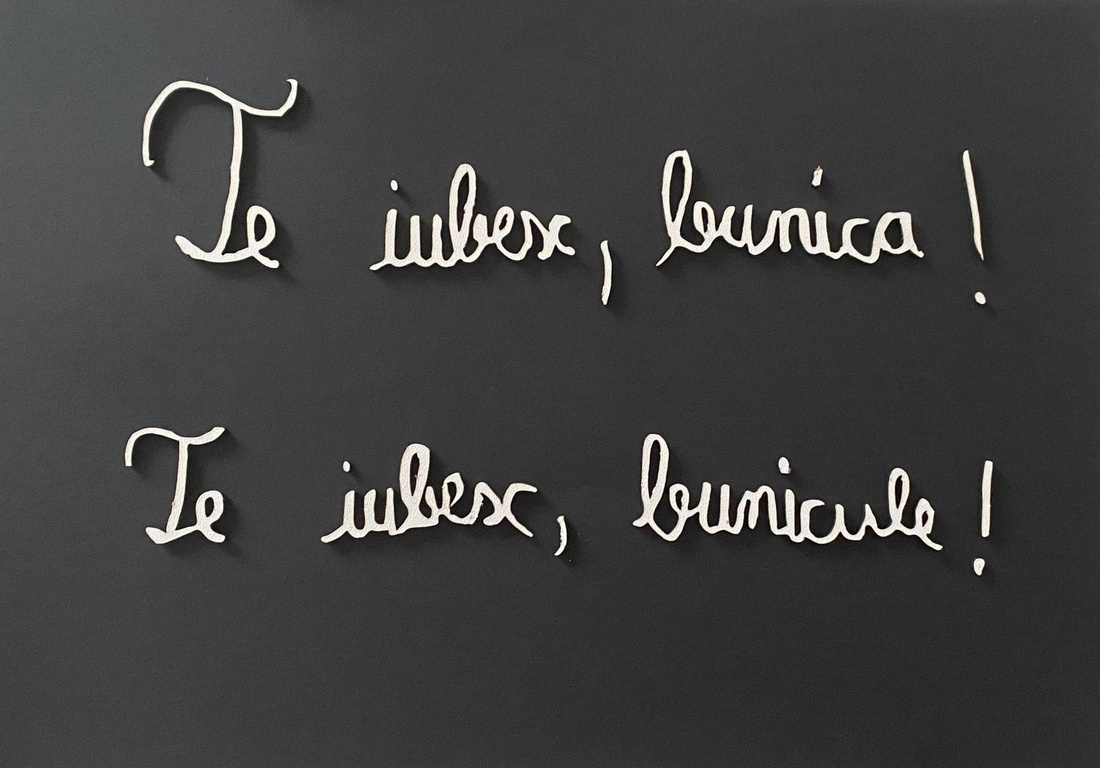 Te iubesc, bunica!
Te iubesc, bunicule!